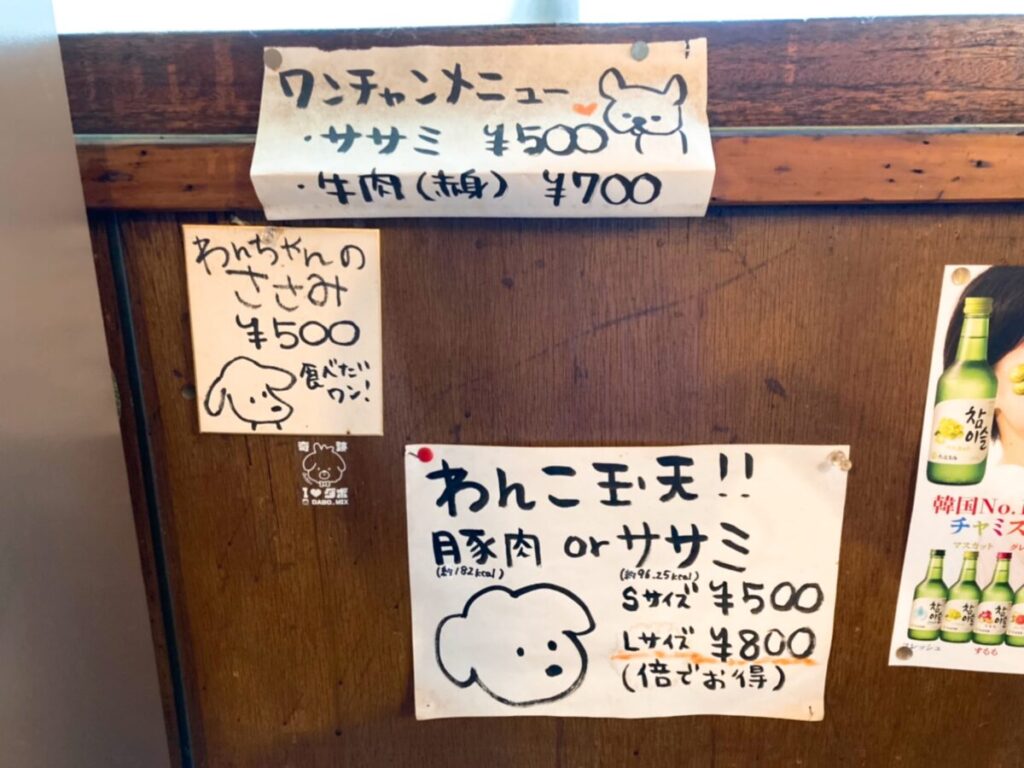 ワンチャンメニュー
・ササミ ¥500
・牛肉(赤身) ¥700
わんちゃんの
ささみ
¥500
食べたい
ワン!
奇跡
I ♥ ダボ
DABO.MIX
わんこ玉天!!
豚肉 or ササミ
(約182kcal) (約96.25kcal)
Sサイズ ¥500
Lサイズ ¥800
(倍でお得)
참이슬
韓国No.1
チャミス
マスカット グレ
참이슬 참이슬 참이슬
レッシュ すもも